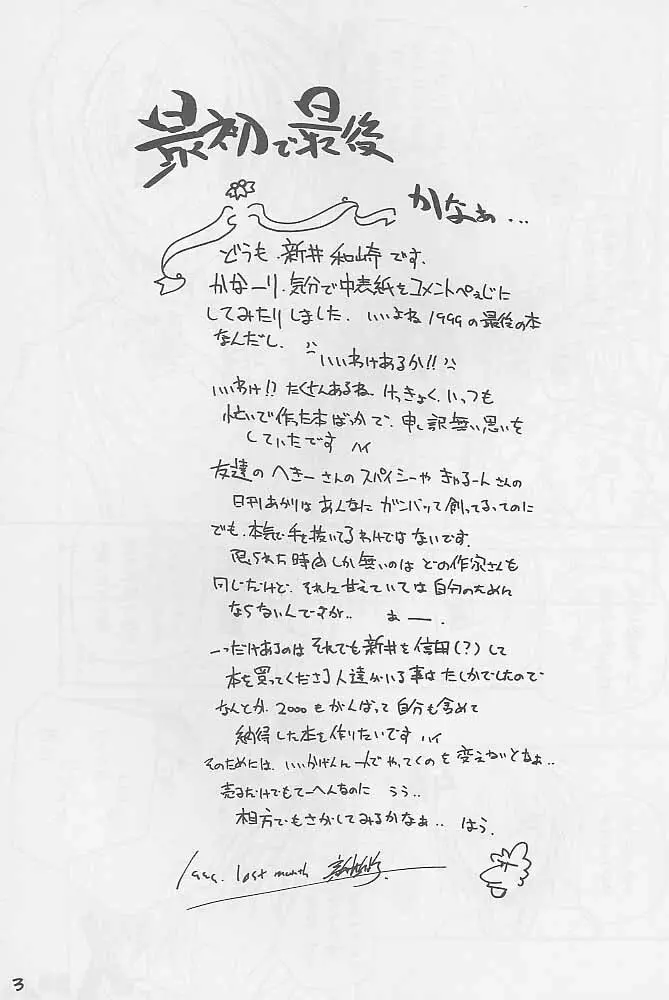 最初で最後
かなぁ...
どうも.新井 和崎 です.
かなーり.気分で中表紙をコメントぺぇじに
してみたりしました. いいよね 1999の最後の本
なんだし.
いいわけあるか!!
いいわけ!? たくさんあるね. けっきょく.いっつも
忙いで作った本ばっかで.申し訳無い思いを
していたです ハイ
友達の へきーさんのスパイシーや きゃるーん さんの
日刊あかりは あんなに ガンバッて創ってるってのに
でも.本気で手を抜いてるわけではないです.
限られた時間しか無いのは どの作家さんも
同じだけど. それに甘えていては自分のために
ならないんですが.. ぁー.
一つだけあるのは それでも新井を信用(?)して
本を買ってくださる人達がいる事はたしかでしたので
なんとか. 2000もがんばって自分も含めて
納得した本を作りたいです ハイ
そのためには.いいかげん一人でやってくのを変えないとなぁ..
売るだけでもてーへんなのに うぅ..
相方でもさがしてみるかなぁ.. はう.
1999. last month
3